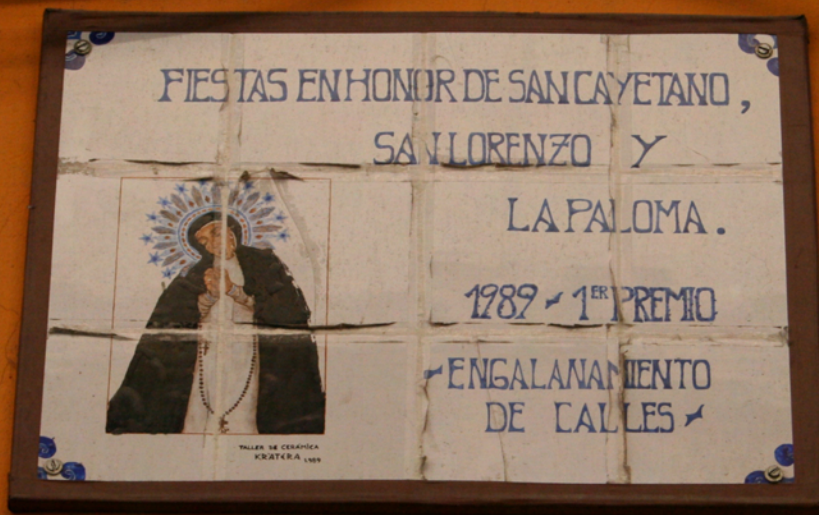 FIESTAS EN HONOR DE SAN CAYETANO,
SAN LORENZO Y
LA PALOMA.
1989 - 1ER PREMIO
- ENGALANAMIENTO
DE CALLES -
TALLER DE CERÁMICA
KRÁTERA 1989